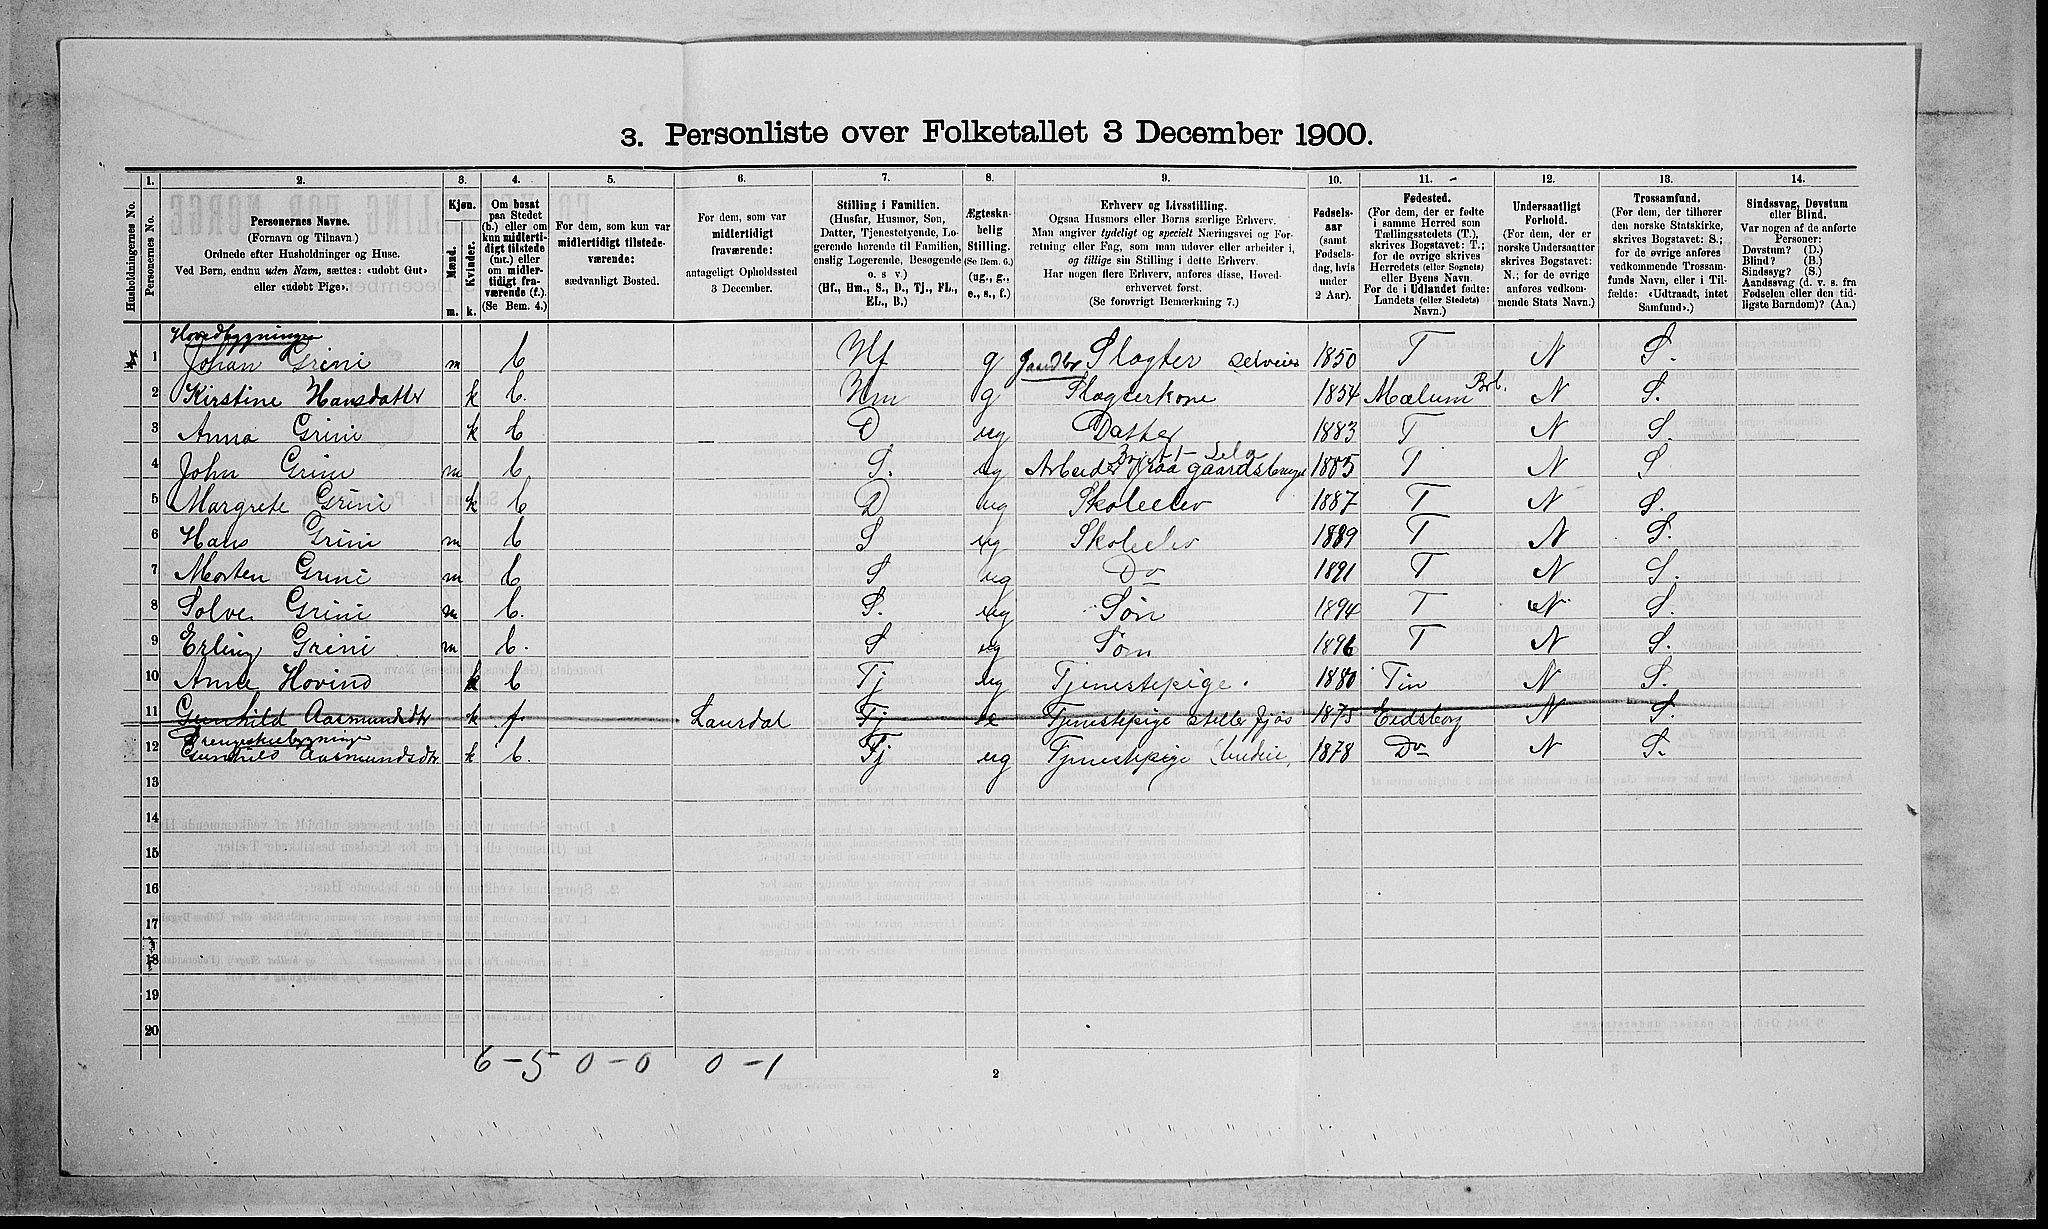 3. Personliste over Folketallet 3 December 1900.
1. 2. 3. 4. 5. 6. 7. 8. 9. 10. 11. 12. 13. 14.
Husholdningernes No.
Personernes No.
Personernes Navne.
(Fornavn og Tilnavn.)
Ordnede efter Husholdninger og Huse.
Ved Børn, endnu uden Navn, sættes: «udøbt Gut»
eller «udøbt Pige».
Kjøn.
Mænd.
Kvinder.
m. k.
Om bosat
paa Stedet
(b.) eller om
kun midlerti-
digt tilstede
(mt.) eller
om midler-
tidigt fra-
værende (f.).
(Se Bem. 4.)
For dem, som kun var
midlertidigt tilstede-
værende:
sædvanligt Bosted.
For dem, som var
midlertidigt
fraværende:
antageligt Opholdssted
3 December.
Stilling i Familien.
(Husfar, Husmor, Søn,
Datter, Tjenestetyende, Lo-
gerende hørende til Familien,
enslig Logerende, Besøgende
o. s v.)
(Hf., Hm., S., D., Tj., FL.,
EL., B.)
Ægteska-
belig
Stilling.
(Se Bem. 6.)
(ug., g.,
e., s., f.)
Erhverv og Livsstilling.
Ogsaa Husmors eller Børns særlige Erhverv.
Man angiver tydeligt og specielt Næringsvei og For-
retning eller Fag, som man udøver eller arbeider i,
og tillige sin Stilling i dette Erhverv.
Har nogen flere Erhverv, anføres disse, Hoved-
erhvervet først.
(Se forøvrigt Bemærkning 7.)
Fødsels-
aar
(samt
Fødsels-
dag, hvis
under
2 Aar).
Fødested.
(For dem, der er fødte
i samme Herred som
Tællingsstedets (T.),
skrives Bogstavet: T.;
for de øvrige skrives
Herredets (eller Sognets)
eller Byens Navn.
For de i Udlandet fødte:
Landets (eller Stedets)
Navn.)
Undersaatligt
Forhold.
(For dem, der er
norske Undersaatter
skrives Bogstavet:
N.; for de øvrige
anføres vedkom-
mende Stats Navn.)
Trossamfund.
(For dem, der tilhører
den norske Statskirke,
skrives Bogstavet: S.;
for de øvrige anføres
vedkommende Trossam-
funds Navn, eller i Til-
fælde: «Udtraadt, intet
Samfund».)
Sindssvag, Døvstum
eller Blind.
Var nogen af de anførte
Personer:
Døvstum? (D.)
Blind? (B.)
Sindssyg? (S.)
Aandssvag (d. v. s. fra
Fødselen eller den tid-
ligste Barndom)? (Aa.)
Hovedbygningen
1 Johan Grini m b Hf g Gaardbr Slagter selveier 1850 T N S.
2 Kirstine Hansdatter k b. Hm g Slagterkone 1854 Mælum Brb. N S.
3 Anna Grini k b D ug Datter 1883 T N S.
4 John Grini m b S. ug Arbeider paa gaardsbruget 1885 T N S
5 Margrete Grini k b D ug Skoleelev 1887 T N S.
6 Hans Grini m b S ug Skoleelev 1889 T N S.
7 Morten Grini m b S ug Do 1891 T N S.
8 Solve Grini m b. S. ug Søn 1894 T N S.
9 Erling Grini m b. S ug Søn 1896 T N S.
10 Anne Hovind k b Tj ug Tjenestepige. 1880 Tin N S.
11 Gunhild Aasmundsdtr k f. Laurdal Tj Tjenestepige steller Fjøs 1875 Eidsborg N S.
Drengestuebygningen
12 Gunhild Aasmundsdtr k b. Tj ug Tjenestepige 1878 Do N S.
13
14
15
16
17
18
19
20
6 - 5 0 - 0 0 - 1
2